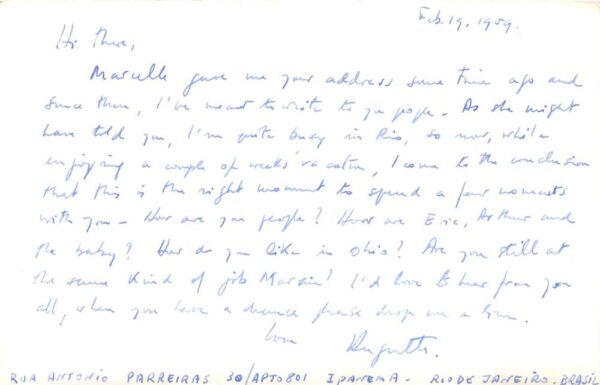 Feb. 19, 1959.
Hi there,
Marcelle gave me your address some time ago and
since then, I've meant to write to you people - As she might
have told you, I'm quite busy in Rio, so now, while
enjoying a couple of weeks' vacation, I come to the conclusion
that this is the right moment to spend a few moments
with you - How are you people? How are Eric, Arthur and
the baby? How do you like in Ohio? Are you still at
the same kind of job Marvin? I'd love to hear from you
all, when you have a chance please drop me a line.
Love
Huguette.
RUA ANTONIO PARREIRAS 30/APTO801 IPANEMA - RIO DE JANEIRO - BRASIL